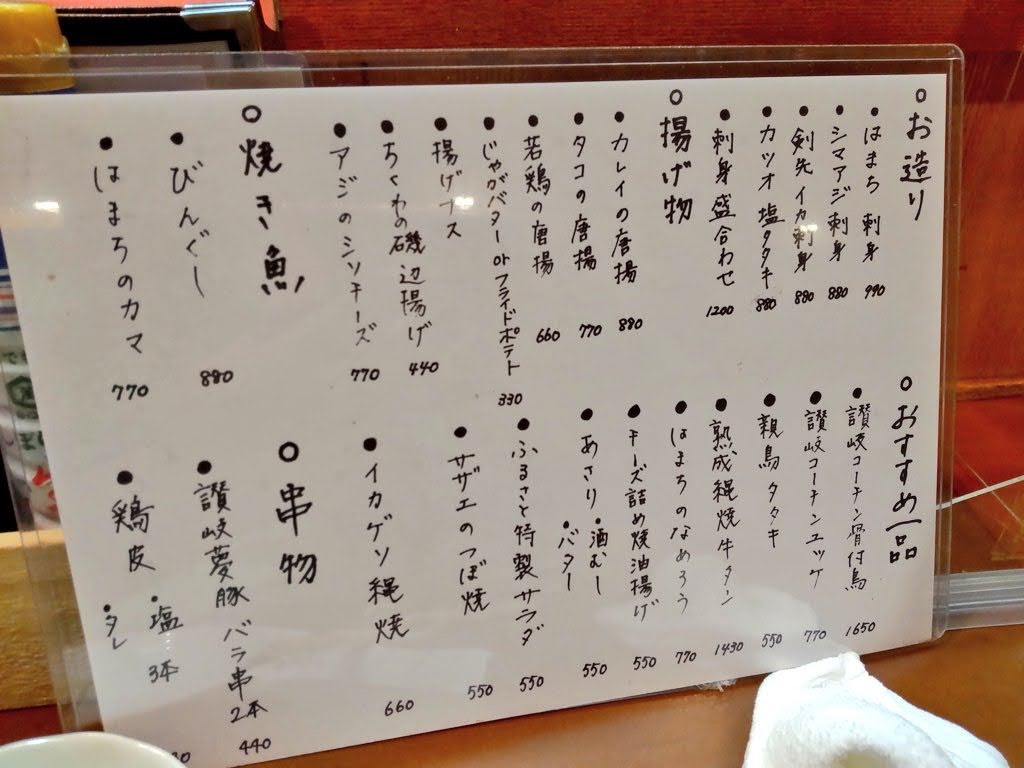 ○お造り
●はまち 刺身 990
●シマアジ刺身 880
●剣先イカ刺身 880
●カツオ塩タタキ 880
●刺身盛合わせ 1200
○揚げ物
●カレイの唐揚 880
●タコの唐揚 770
●若鶏の唐揚 660
●じゃがバターorフライドポテト 330
●揚げナス
●ちくわの磯辺揚げ 440
●アジのシソチーズ 770
○焼き魚
●びんぐし 880
●はまちのカマ 770
○おすすめ一品
●讃岐コーチン骨付鳥 1650
●讃岐コーチンユッケ 770
●親鳥タタキ 550
●熟成縄焼牛タン 1430
●はまちのなめろう 770
●チーズ詰め焼油揚げ 550
●あさり・酒むし
・バター 550
●ふるさと特製サラダ 550
●サザエのつぼ焼 550
●イカゲソ縄焼 660
○串物
●讃岐夢豚バラ串2本 440
●鶏皮・塩 3本
・タレ